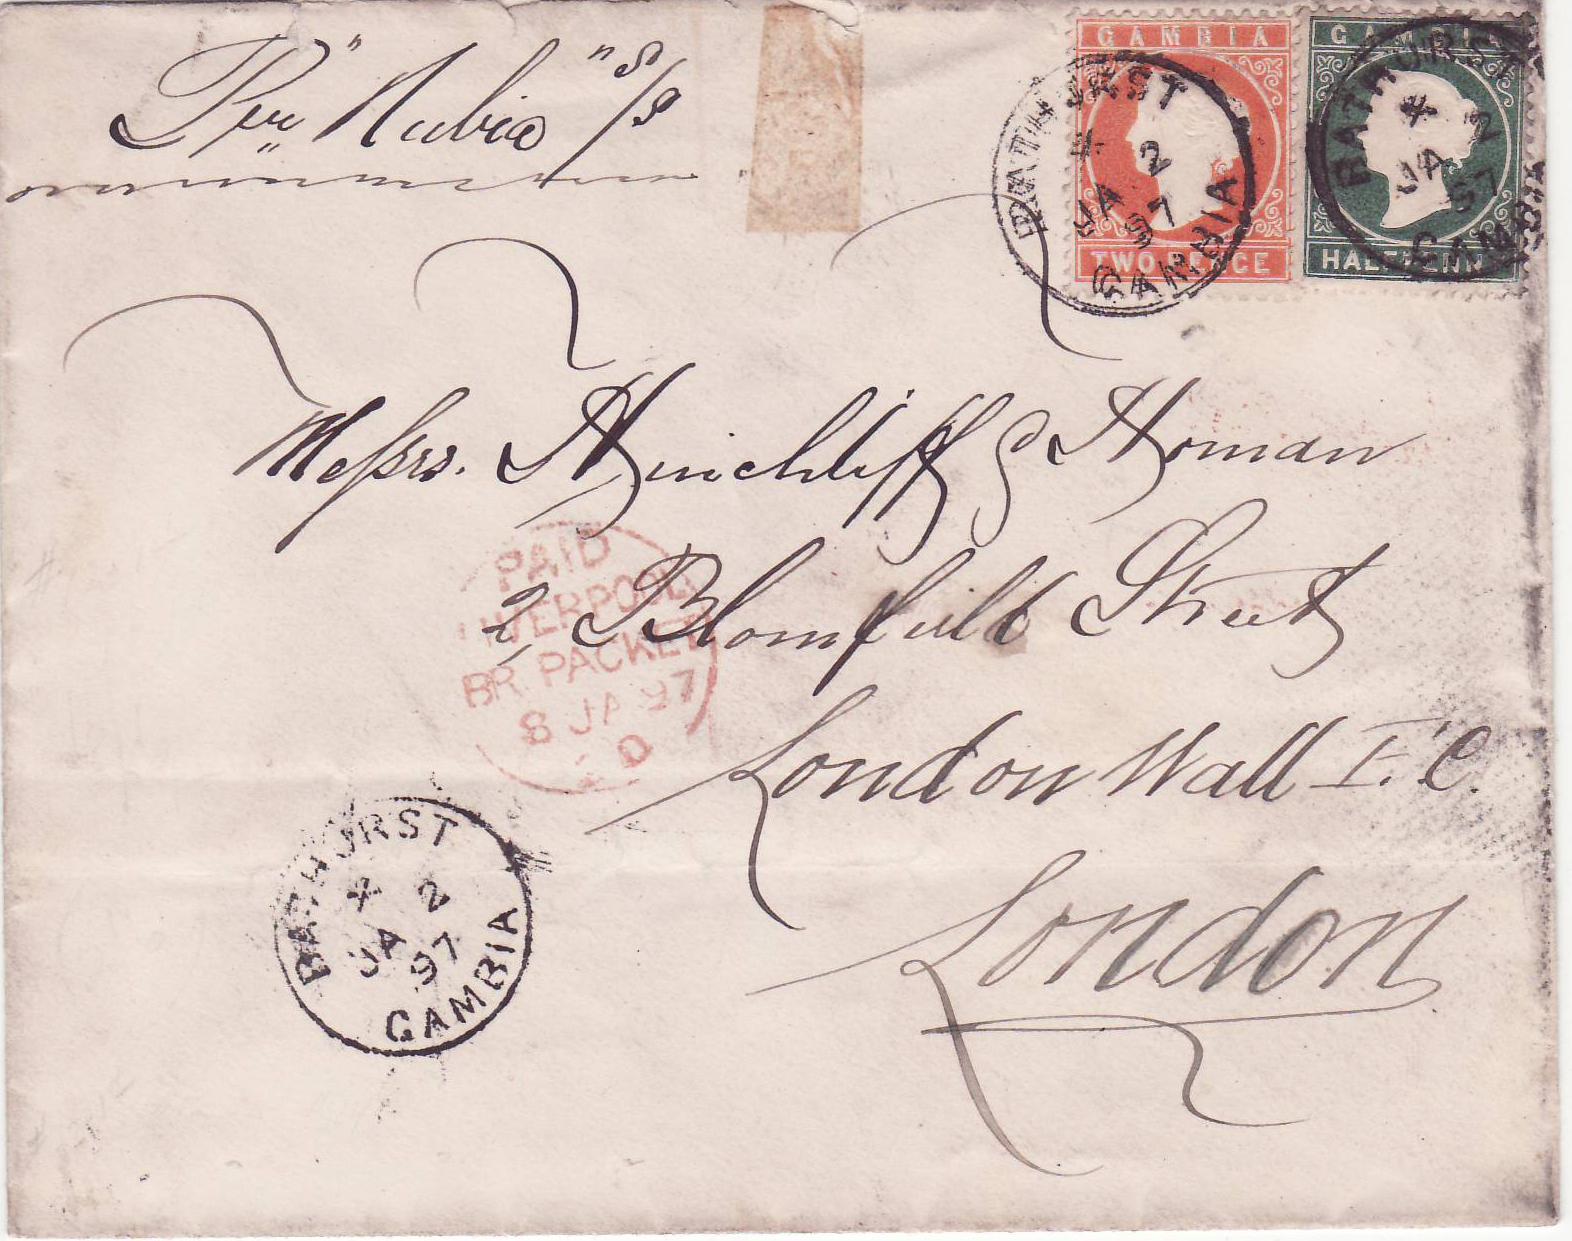 Per "Nubia" S/S
GAMBIA
TWO PENCE
GAMBIA
HALFPENNY
BATHURST
* 2
JA 97
GAMBIA
BATHURST
* 2
JA 97
GAMBIA
Messrs. Hinchliff & Homan
2, Blomfield Street
London Wall E.C.
London
PAID
LIVERPOOL
BR. PACKET
8 JA 97
BATHURST
* 2
JA 97
GAMBIA